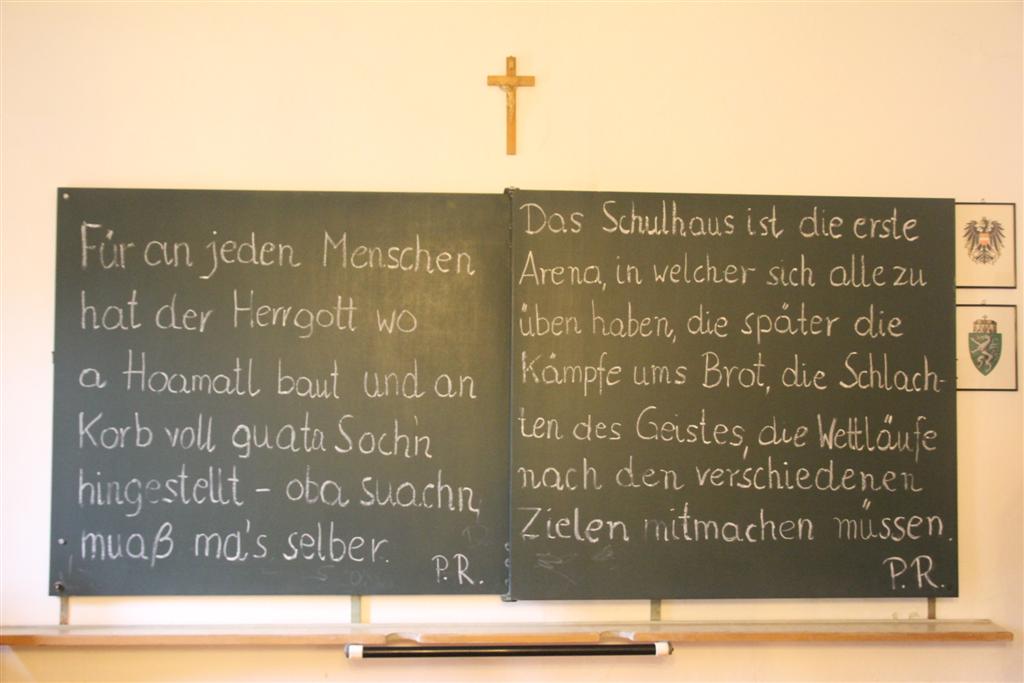 Für an jeden Menschen
hat der Herrgott wo
a Hoamatl baut und an
Korb voll guata Soch'n
hingestellt - oba suachn,
muaß ma's selber.
P.R.
Das Schulhaus ist die erste
Arena, in welcher sich alle zu
üben haben, die später die
Kämpfe ums Brot, die Schlach-
ten des Geistes, die Wettläufe
nach den verschiedenen
Zielen mitmachen müssen.
P.R.